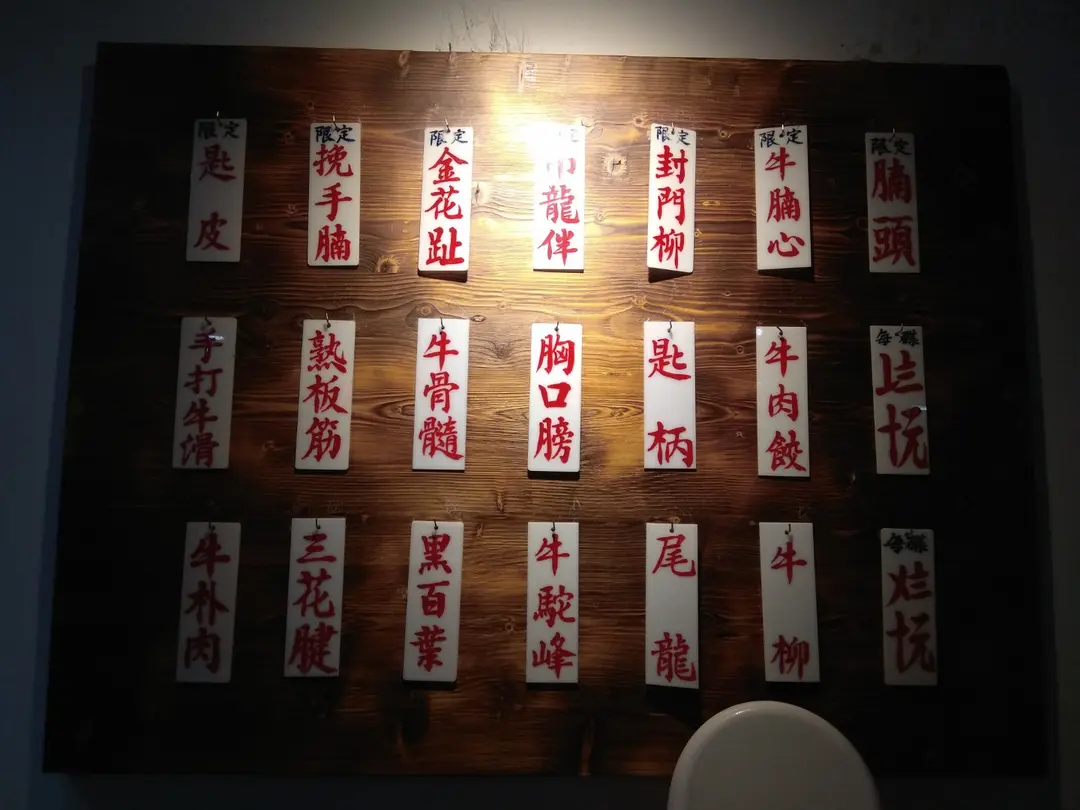 限定
匙皮
限定
挽手腩
限定
金花趾
龍伴
限定
封門柳
限定
牛腩心
限定
腩頭
手打牛滑
熟板筋
牛骨髓
胸口膀
匙柄
牛肉餃
每碟
牛朴肉
三花腱
黑百葉
牛駝峰
尾龍
牛柳
每碟